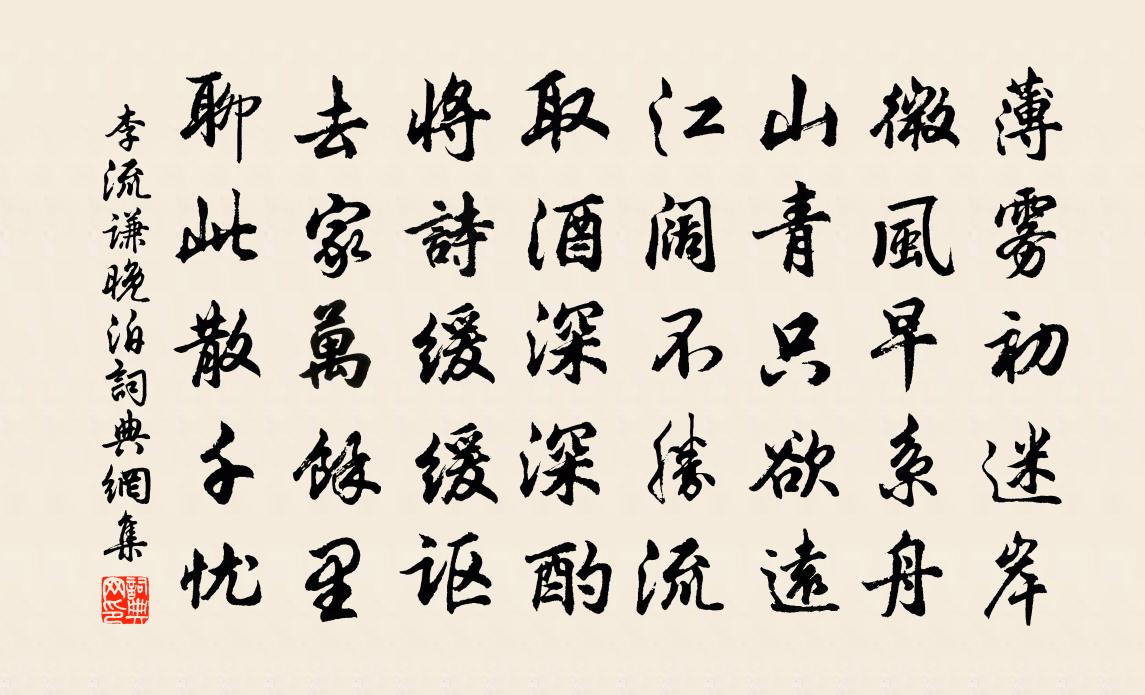 薄雾初迷岸
微風早系舟
山青只欲遠
江阔不勝流
取酒深深酌
將詩缓缓讴
去家萬餘里
聊此散千忧
李流谦晚泊詞典網集
詞典网印